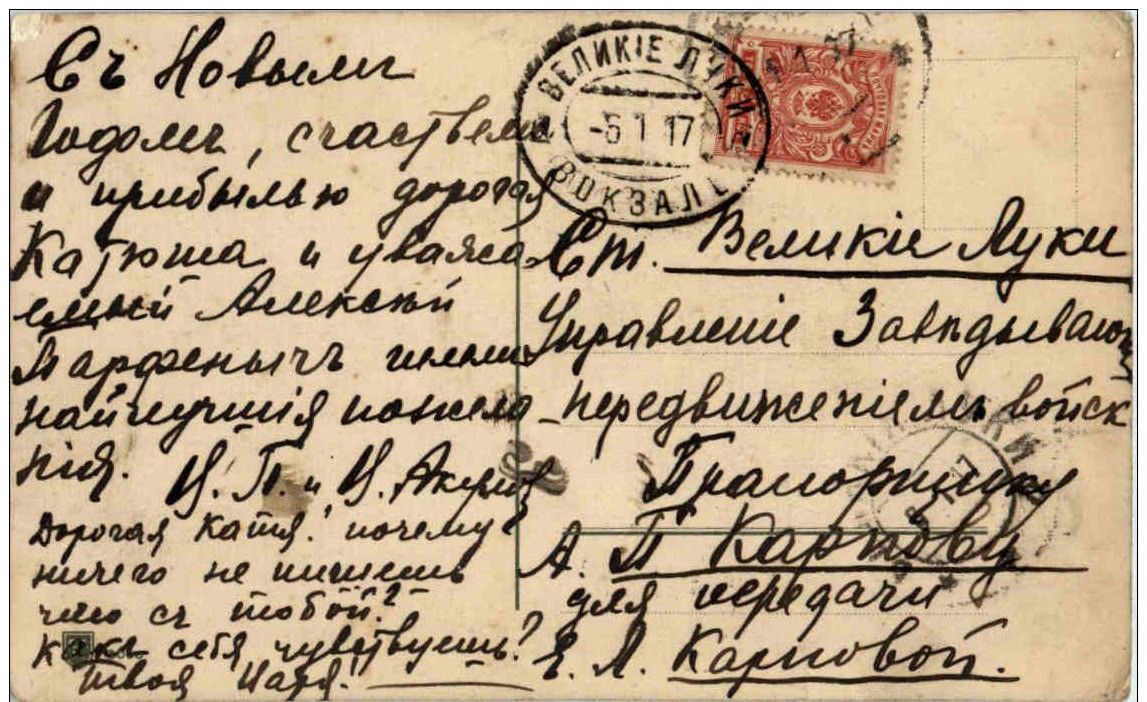 Съ Новымъ
Годомъ, счастьемъ
и прибылью дорогая
Катюша и уважа-
емый Алексѣй
Парфенычъ шлемъ
найлучшія пожела-
нія.
Дорогая Катя! почему
ничего не пишешь
что съ тобой?
Какъ себя чувствуешь?
твоя
ВЕЛИКІЕ ЛУКИ
-5 1 17
ВОКЗАЛЪ
Ст. Великіе Луки
Управленіе Завѣдывающ
передвиженіемъ войск
Прапорщику
А. П Карпову
для передачи
Е. Л. Карповой.